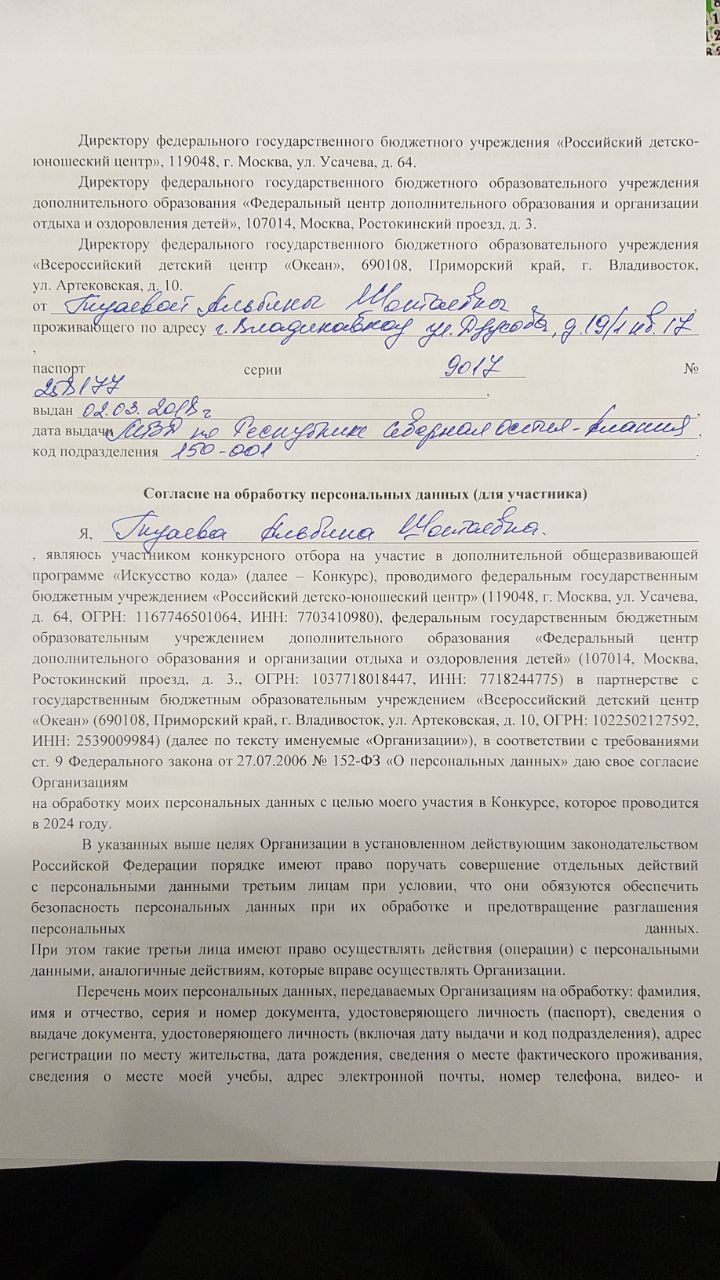 Директору федерального государственного бюджетного учреждения «Российский детско-
юношеский центр», 119048, г. Москва, ул. Усачева, д. 64.
Директору федерального государственного бюджетного образовательного учреждения
дополнительного образования «Федеральный центр дополнительного образования и организации
отдыха и оздоровления детей», 107014, Москва, Ростокинский проезд, д. 3.
Директору федерального государственного бюджетного образовательного учреждения
«Всероссийский детский центр «Океан», 690108, Приморский край, г. Владивосток,
ул. Артековская, д. 10.
от Альбины ,
проживающего по адресу г. Владикавказ ул. д. 19/1 кв. 17
,
паспорт серии 9017 №
,
выдан 02.03.2018 г ,
дата выдачи МВД по Республике Северная Осетия-Алания ,
код подразделения 150-001 .
Согласие на обработку персональных данных (для участника)
Я, Альбина
, являюсь участником конкурсного отбора на участие в дополнительной общеразвивающей
программе «Искусство кода» (далее – Конкурс), проводимого федеральным государственным
бюджетным учреждением «Российский детско-юношеский центр» (119048, г. Москва, ул. Усачева,
д. 64, ОГРН: 1167746501064, ИНН: 7703410980), федеральным государственным бюджетным
образовательным учреждением дополнительного образования «Федеральный центр
дополнительного образования и организации отдыха и оздоровления детей» (107014, Москва,
Ростокинский проезд, д. 3., ОГРН: 1037718018447, ИНН: 7718244775) в партнерстве с
государственным бюджетным образовательным учреждением «Всероссийский детский центр
«Океан» (690108, Приморский край, г. Владивосток, ул. Артековская, д. 10, ОГРН: 1022502127592,
ИНН: 2539009984) (далее по тексту именуемые «Организации»), в соответствии с требованиями
ст. 9 Федерального закона от 27.07.2006 № 152-ФЗ «О персональных данных» даю свое согласие
Организациям
на обработку моих персональных данных с целью моего участия в Конкурсе, которое проводится
в 2024 году.
В указанных выше целях Организации в установленном действующим законодательством
Российской Федерации порядке имеют право поручать совершение отдельных действий
с персональными данными третьим лицам при условии, что они обязуются обеспечить
безопасность персональных данных при их обработке и предотвращение разглашения
персональных данных.
При этом такие третьи лица имеют право осуществлять действия (операции) с персональными
данными, аналогичные действиям, которые вправе осуществлять Организации.
Перечень моих персональных данных, передаваемых Организациям на обработку: фамилия,
имя и отчество, серия и номер документа, удостоверяющего личность (паспорт), сведения о
выдаче документа, удостоверяющего личность (включая дату выдачи и код подразделения), адрес
регистрации по месту жительства, дата рождения, сведения о месте фактического проживания,
сведения о месте моей учебы, адрес электронной почты, номер телефона, видео- и